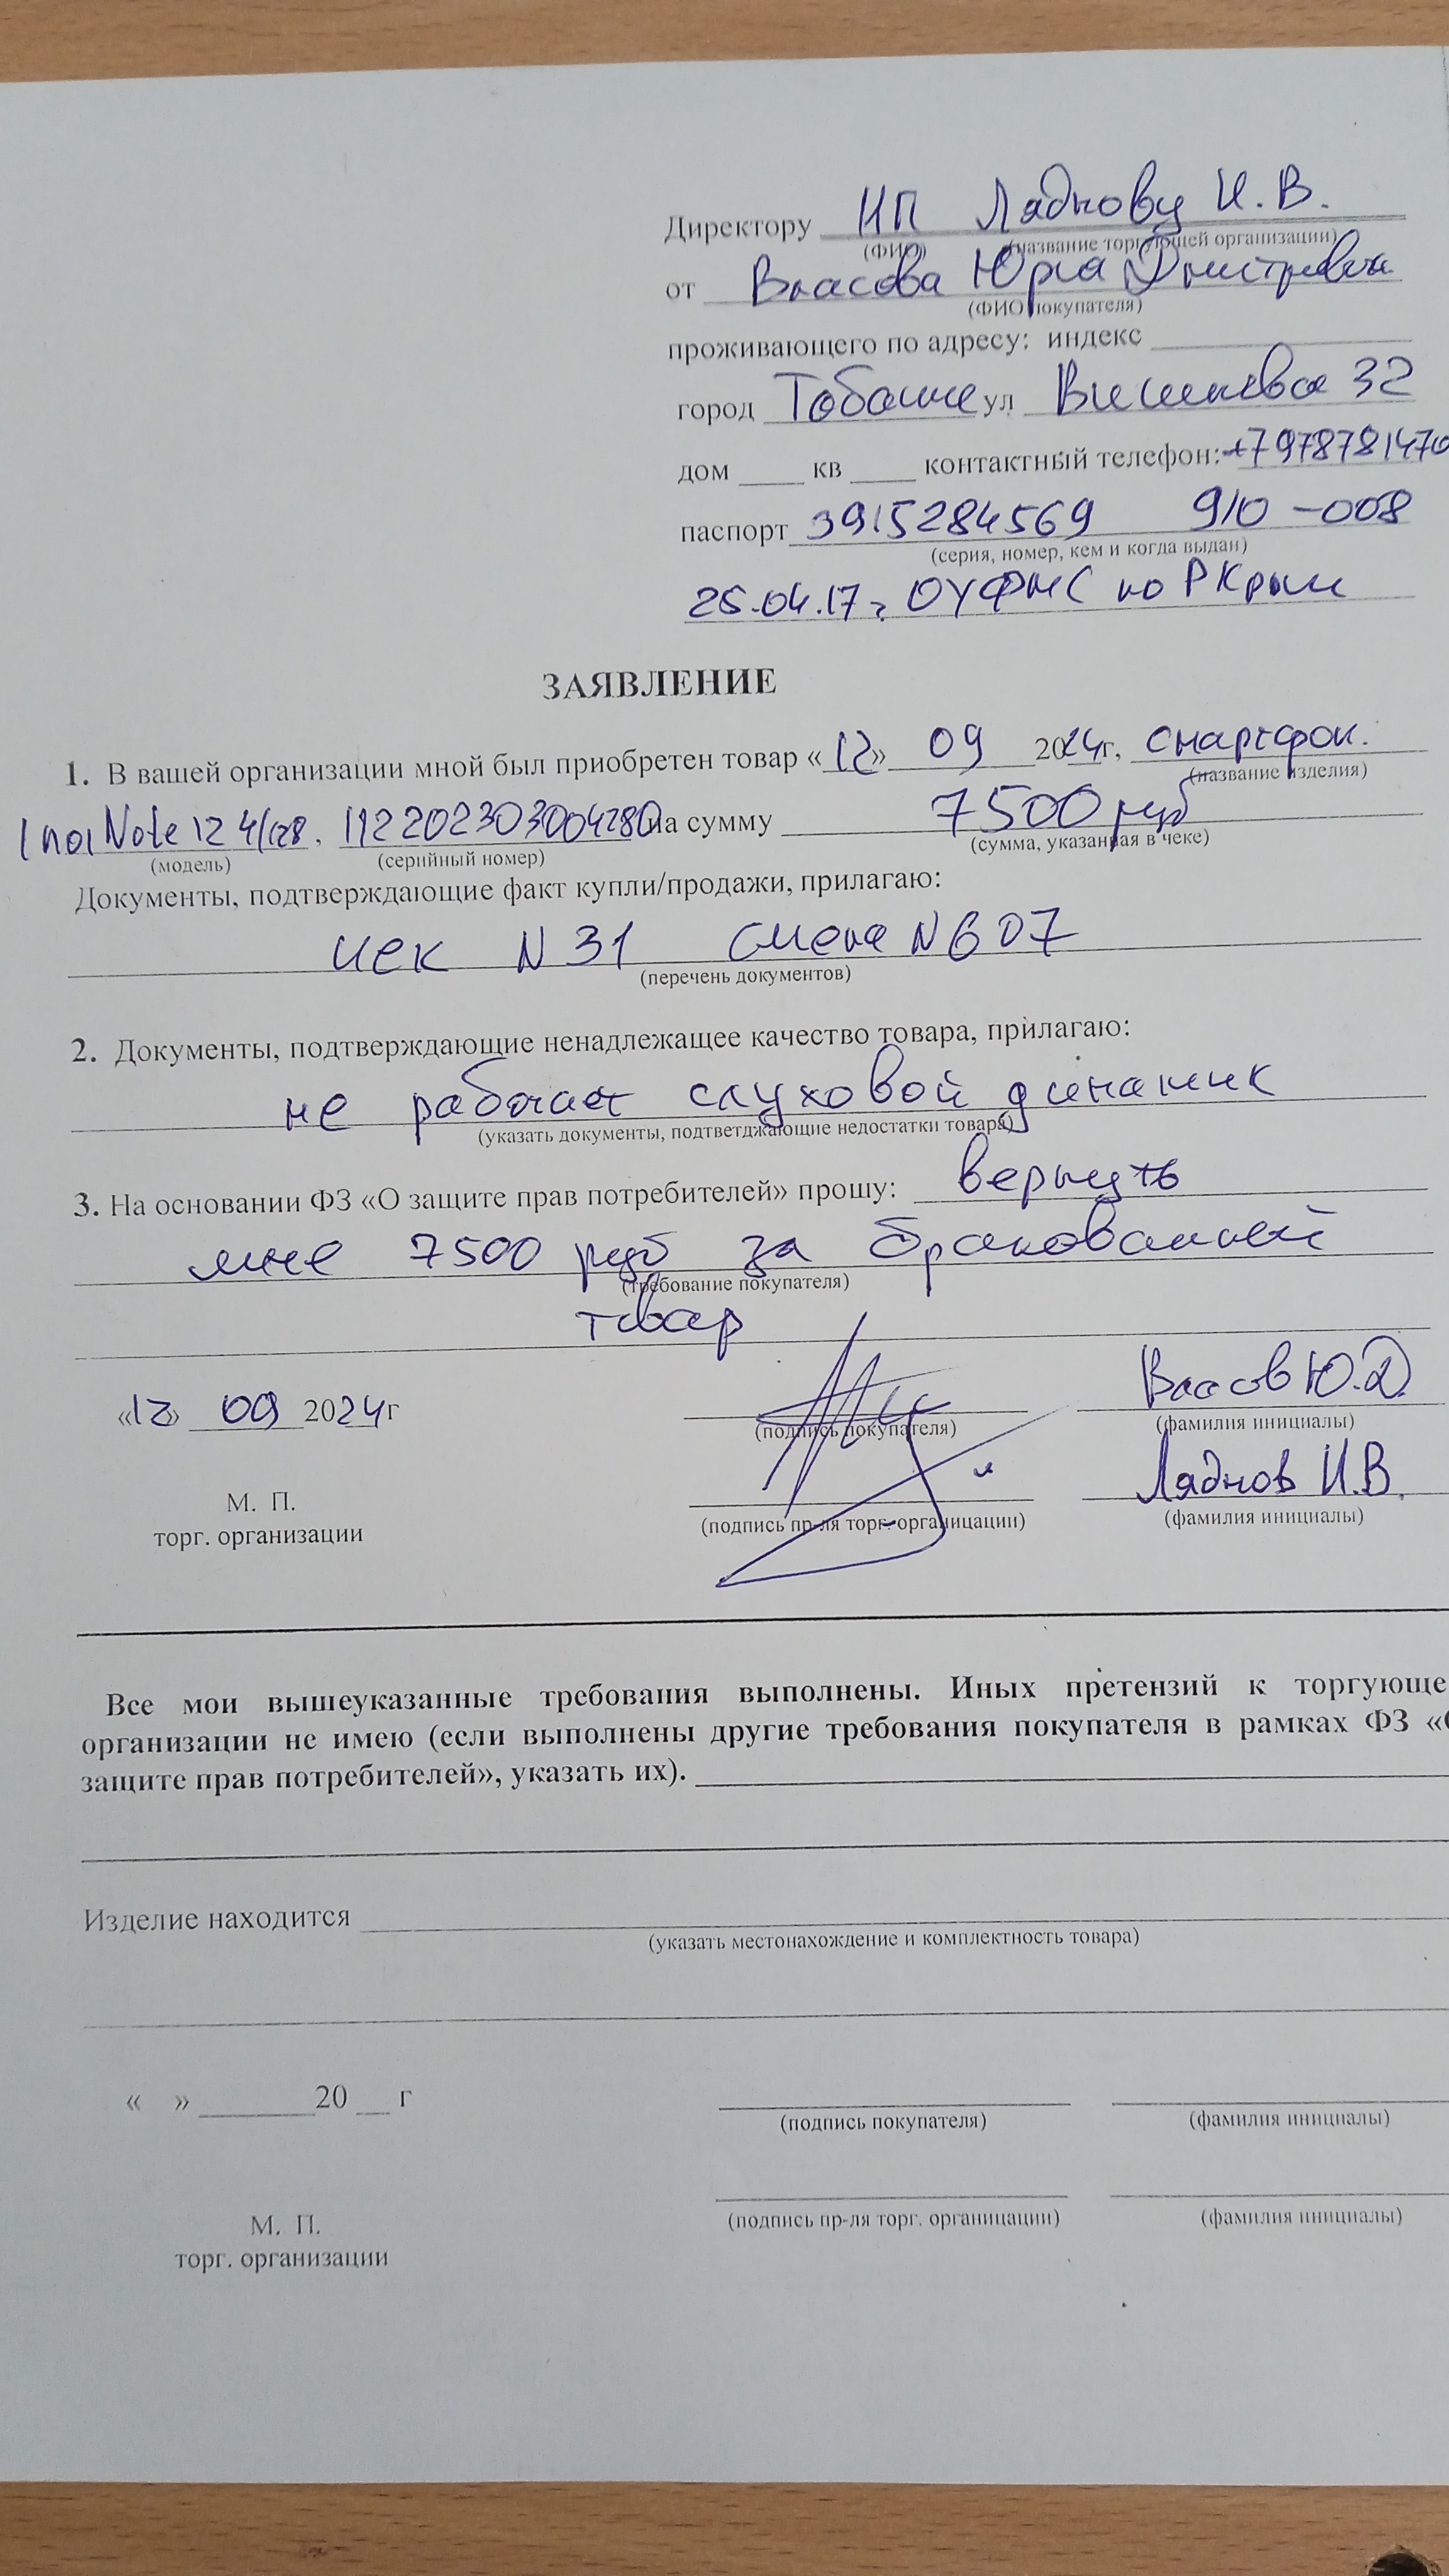 Директору ИП Ляднову И.В.
(ФИО) (название торгующей организации)
от Власова Юрия Дмитриевича
(ФИО покупателя)
проживающего по адресу: индекс ____
город ул Вишневая 32
дом ____ кв ____ контактный телефон: +7978781470
паспорт 3915284569 910-008
(серия, номер, кем и когда выдан)
25.04.17г. ОУФМС по РКрым
ЗАЯВЛЕНИЕ
1. В вашей организации мной был приобретен товар «12» 09 2024г, смартфон.
(название изделия)
Inoi Note 12 4/128, 112202303004280 на сумму 7500 руб
(модель) (серийный номер) (сумма, указанная в чеке)
Документы, подтверждающие факт купли/продажи, прилагаю:
чек N 31 смена N 607
(перечень документов)
2. Документы, подтверждающие ненадлежащее качество товара, прилагаю:
не работает слуховой динамик
(указать документы, подтветджающие недостатки товара)
3. На основании ФЗ «О защите прав потребителей» прошу: вернуть
мне 7500 руб за бракованный
(требование покупателя)
товар
«12» 09 2024г Власов Ю.Д.
(подпись покупателя) (фамилия инициалы)
Ляднов И.В.
М. П.
(подпись пр-ля торг. органицации) (фамилия инициалы)
торг. организации
Все мои вышеуказанные требования выполнены. Иных претензий к торгующе
организации не имею (если выполнены другие требования покупателя в рамках ФЗ «О
защите прав потребителей», указать их). ____
Изделие находится ____
(указать местонахождение и комплектность товара)
« » ____20 __ г
(подпись покупателя) (фамилия инициалы)
М. П.
(подпись пр-ля торг. органицации) (фамилия инициалы)
торг. организации